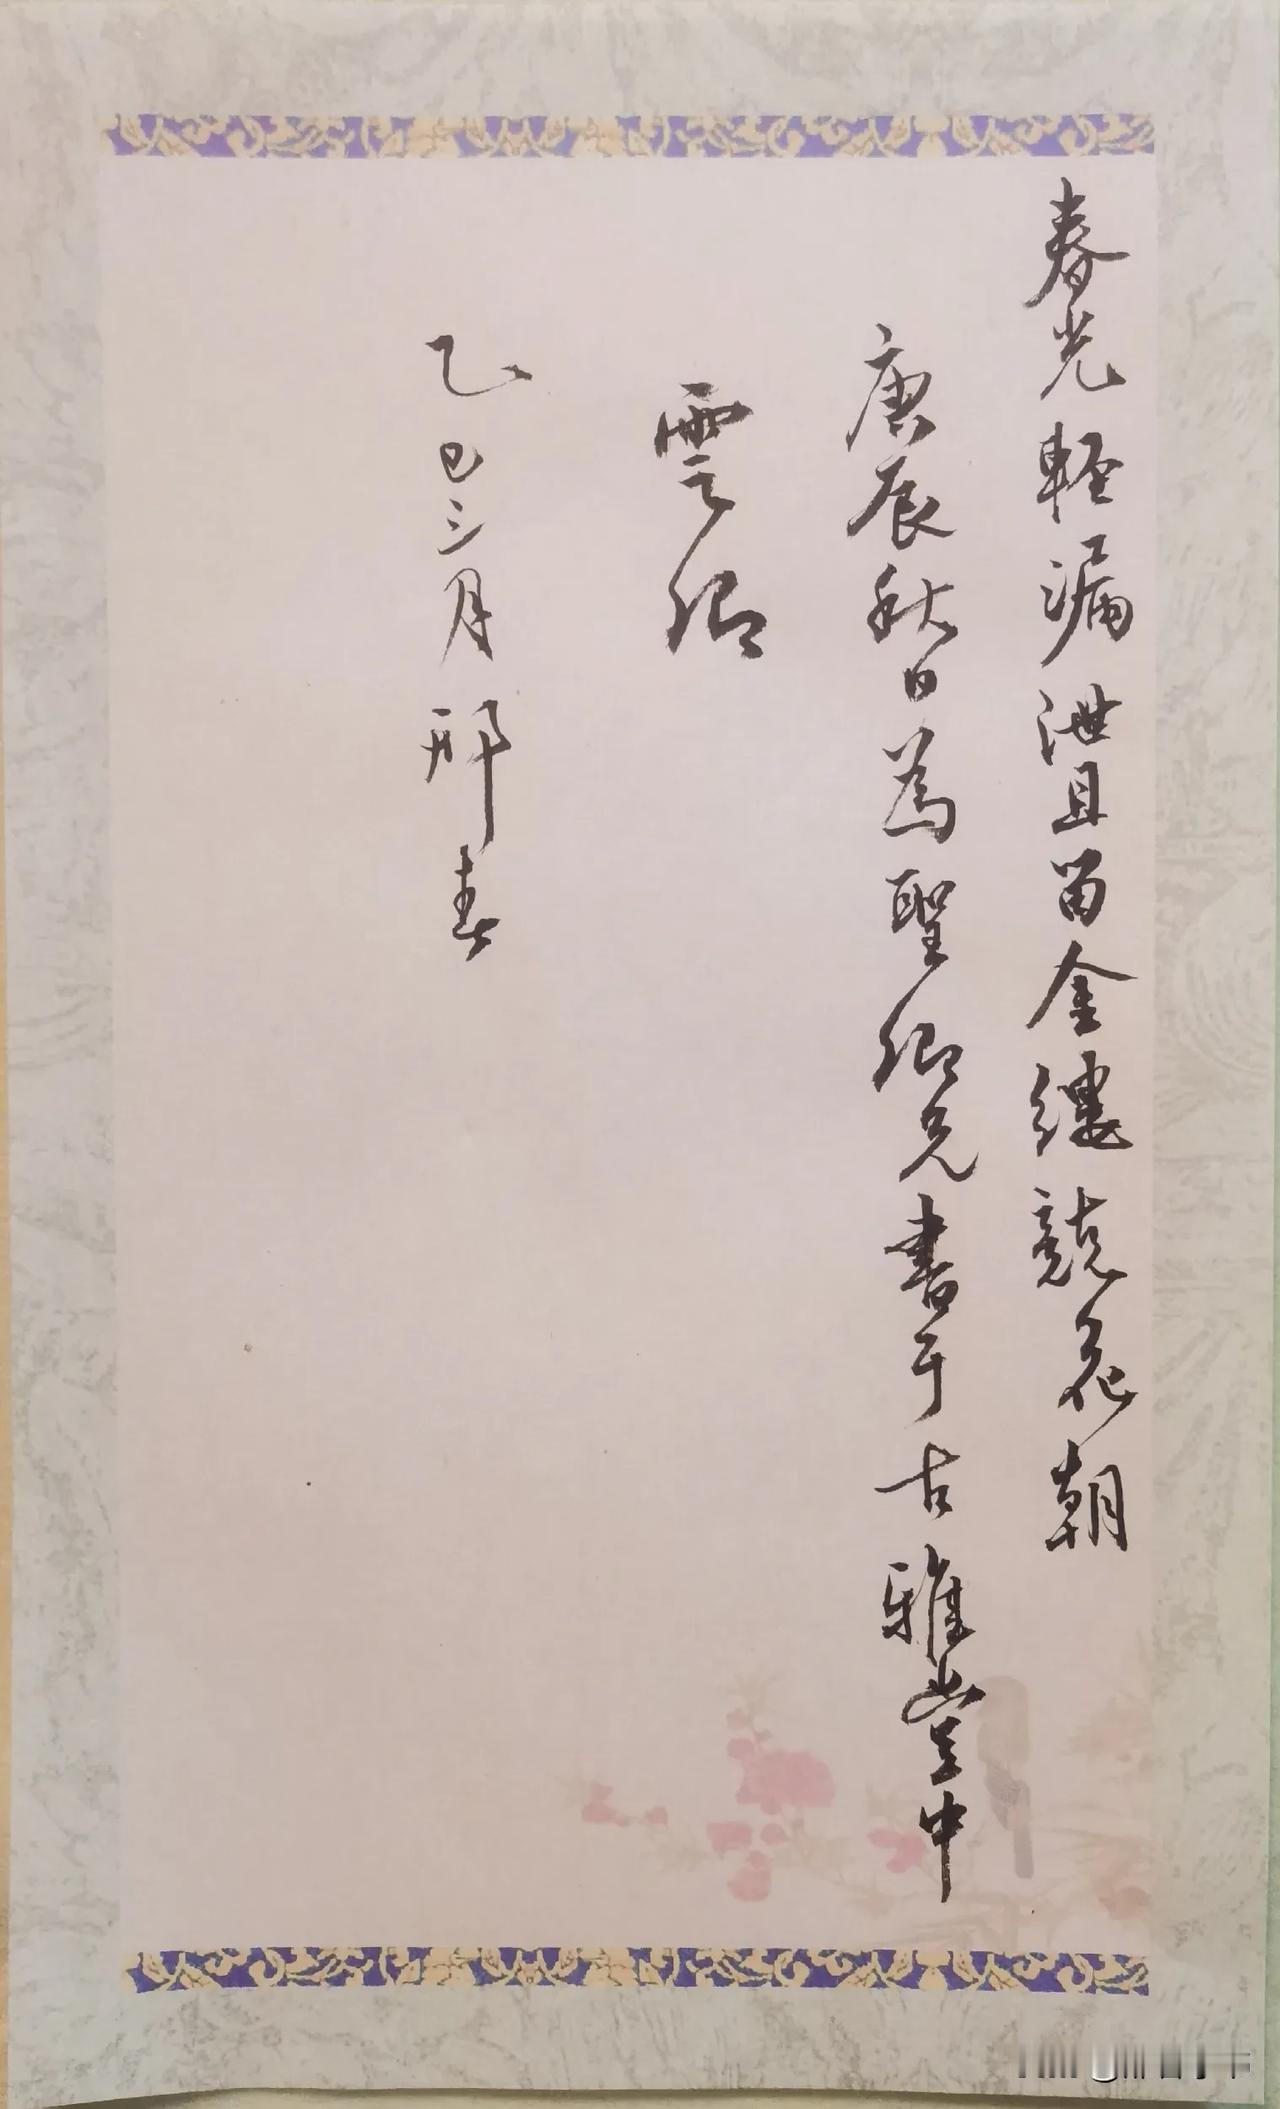 春光輕漏泄且留金縷競花朝
庚辰秋日為聖卿兄書于古雅堂中
雲卿
乙巳三月邢春